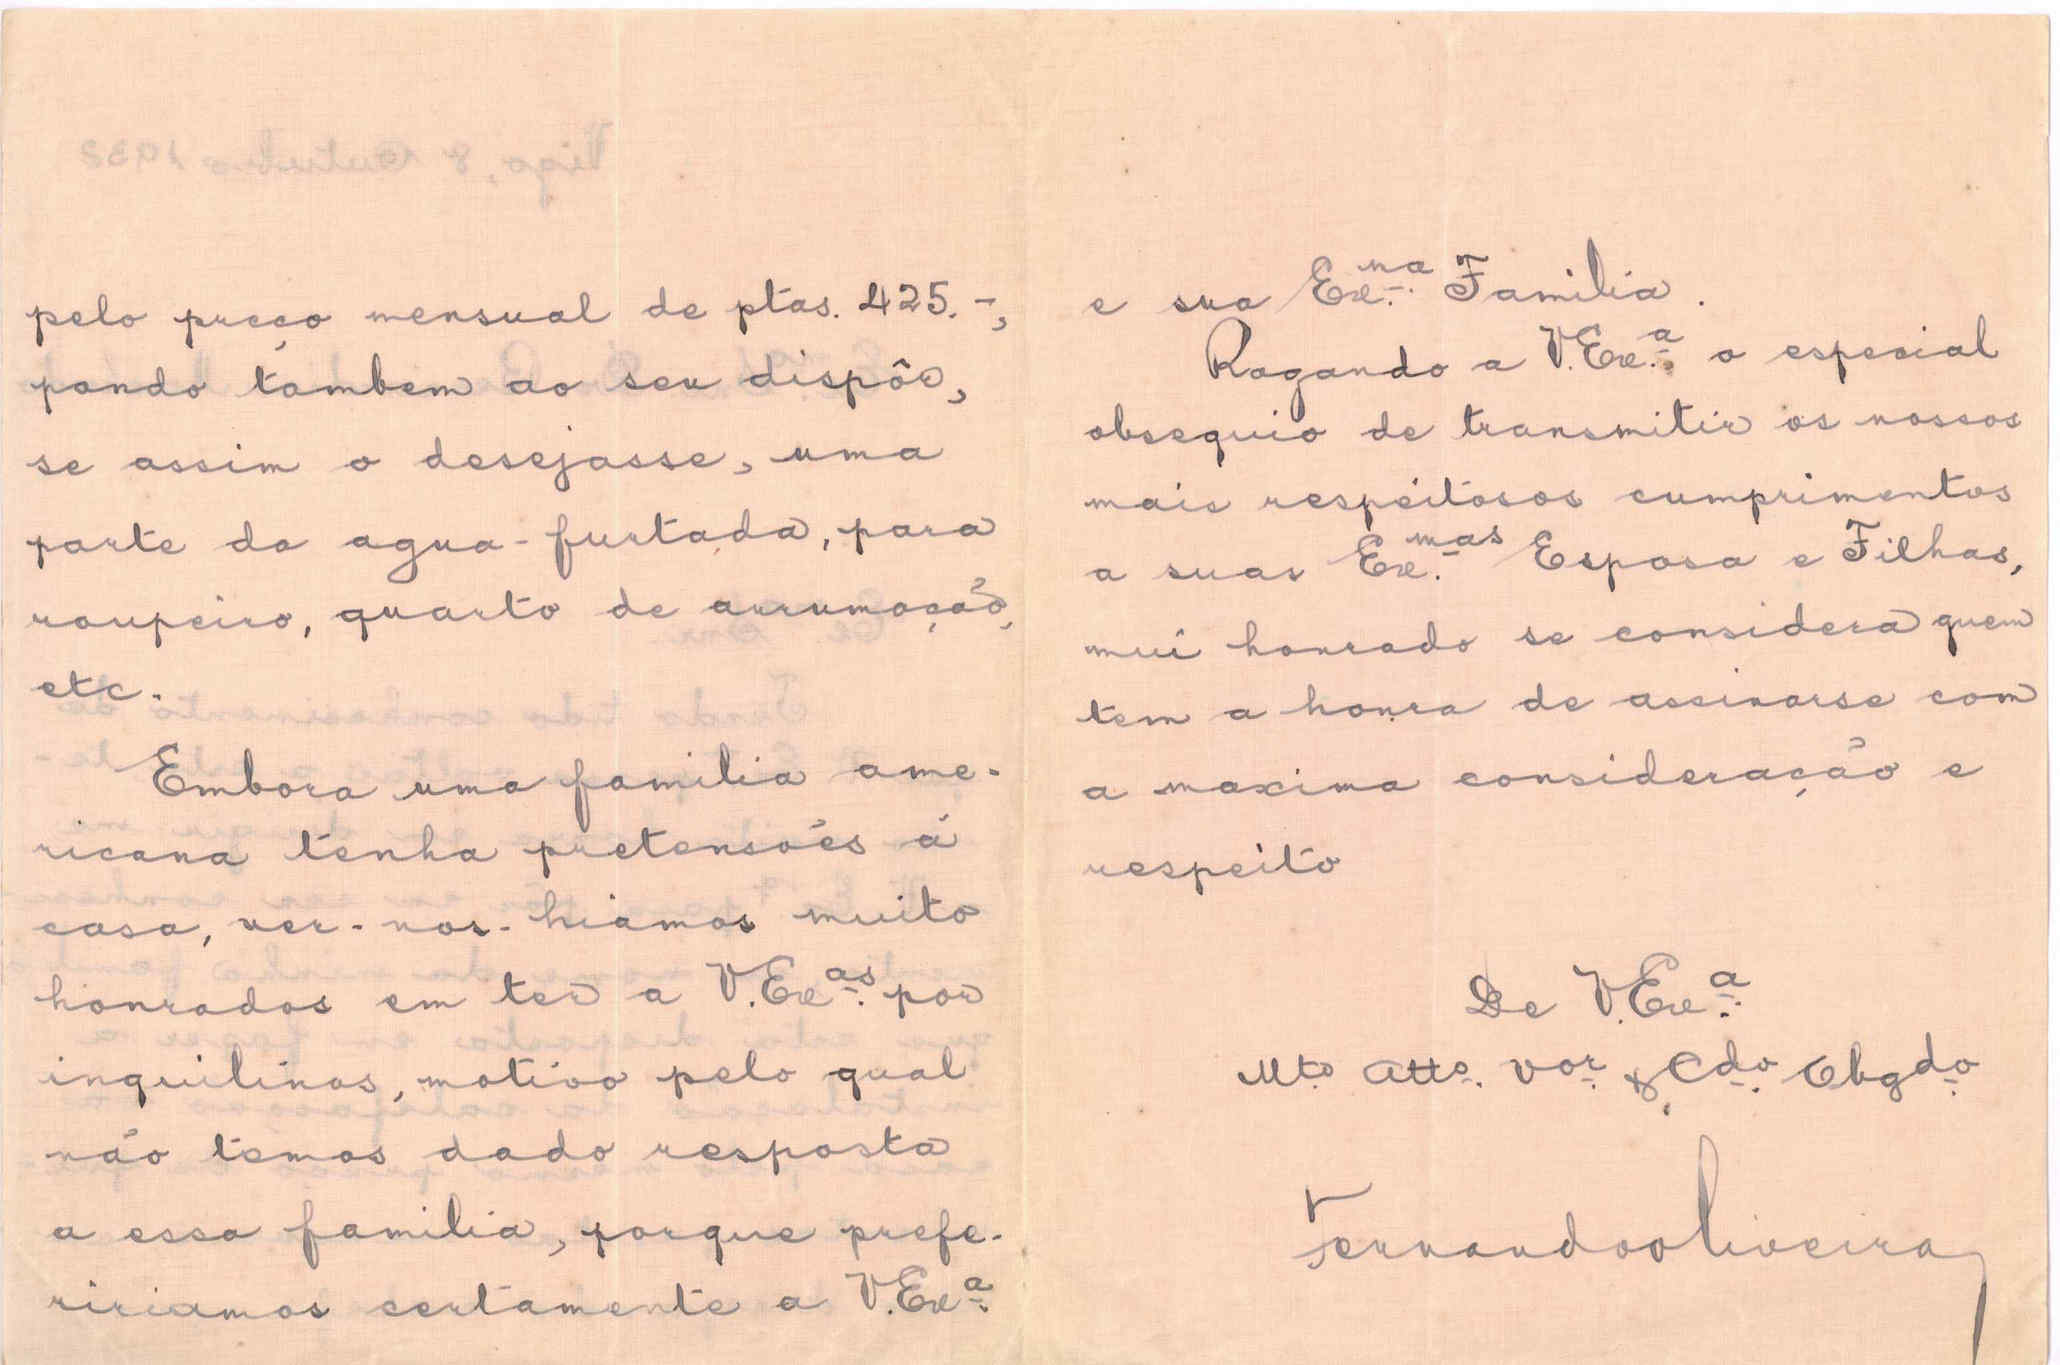 pelo preço mensual de ptas. 425.-,
pondo tambem ao seu dispôr,
se assim o desejasse, uma
parte da agua-furtada, para
roupeiro, quarto de arrumação,
etc.
Embora uma familia ame-
ricana tenha pretensões á
casa, ver-nos-hiamos muito
honrados em ter a V.Exas. por
inquilinos, motivo pelo qual
não temos dado resposta
a essa familia, porque prefe-
ririamos certamente a V.Exa.
e sua Exna. Familia.
Rogando a V.Exa. o especial
obsequio de transmitir os nossos
mais respeitosos cumprimentos
a suas Exmas. Esposa e Filhas,
mui honrado se considera quem
tem a honra de assinarse com
a maxima consideração e
respeito
De V.Exa.
Mto Atto. Vor. & Cdo. Obgdo.
Fernando Oliveira
Vigo, 8 Outubro 1932